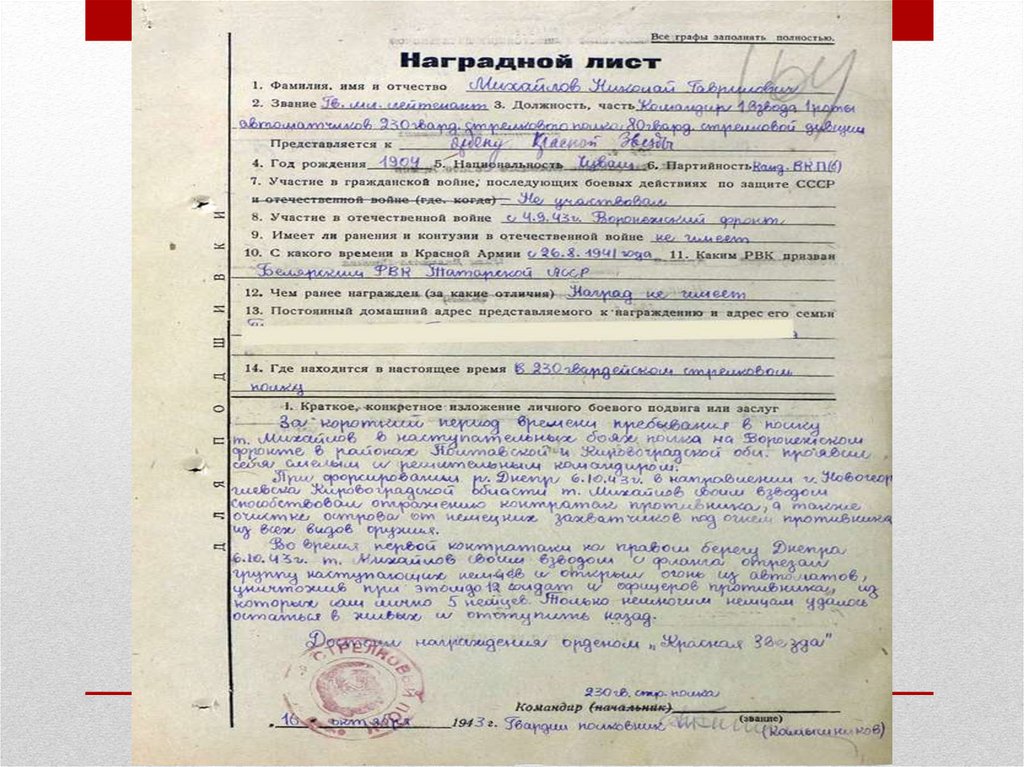 Все графы заполнять полностью.
164
Наградной лист
1. Фамилия, имя и отчество Михайлов Николай Гаврилович
2. Звание Гв. мл. лейтенант 3. Должность, часть Командир 1 взвода 1 роты
автоматчиков 230 гвард. стрелкового полка 80 гвард. стрелковой дивизии
Представляется к ордену Красной Звезды
4. Год рождения 1904 5. Национальность Чуваш 6. Партийность Канд. ВКП(б)
7. Участие в гражданской войне, последующих боевых действиях по защите СССР
и отечественной войне (где, когда) Не участвовал
8. Участие в отечественной войне с 4.9.43 г. Воронежский фронт
9. Имеет ли ранения и контузии в отечественной войне не имеет
10. С какого времени в Красной Армии с 26.8.1941 года 11. Каким РВК призван
Белярским РВК Татарской АССР
12. Чем ранее награжден (за какие отличия) Наград не имеет
13. Постоянный домашний адрес представляемого к награждению и адрес его семьи
14. Где находится в настоящее время В 230 гвардейском стрелковом
полку
ДЛЯ ПОДШИВКИ
I. Краткое, конкретное изложение личного боевого подвига или заслуг
За короткий период времени пребывания в полку
т. Михайлов в наступательных боях полка на Воронежском
фронте в районах Полтавской и Кировоградской обл. проявил
себя смелым и решительным командиром.
При форсировании р. Днепр 6.10.43 г. в направлении г. Новогеор
гиевска Кировоградской области т. Михайлов своим взводом
способствовал отражению контратак противника, а также
очистке острова от немецких захватчиков под огнем противника
из всех видов оружия.
Во время первой контратаки на правом берегу Днепра
6.10.43 г. т. Михайлов своим взводом с фланга отрезал
группу наступающих немцев и открыл огонь из автоматов,
уничтожив при этом до 12 солдат и офицеров противника, из
которых сам лично 5 немцев. Только немногим немцам удалось
остаться в живых и отступить назад.
Достоин награждения орденом „Красная Звезда"
СТРЕЛКОВОЙ ПОЛК
230 гв. стр. полка
Командир (начальник)
16 октября 1943 г. Гвардии полковник
(звание)
(Колтышников)